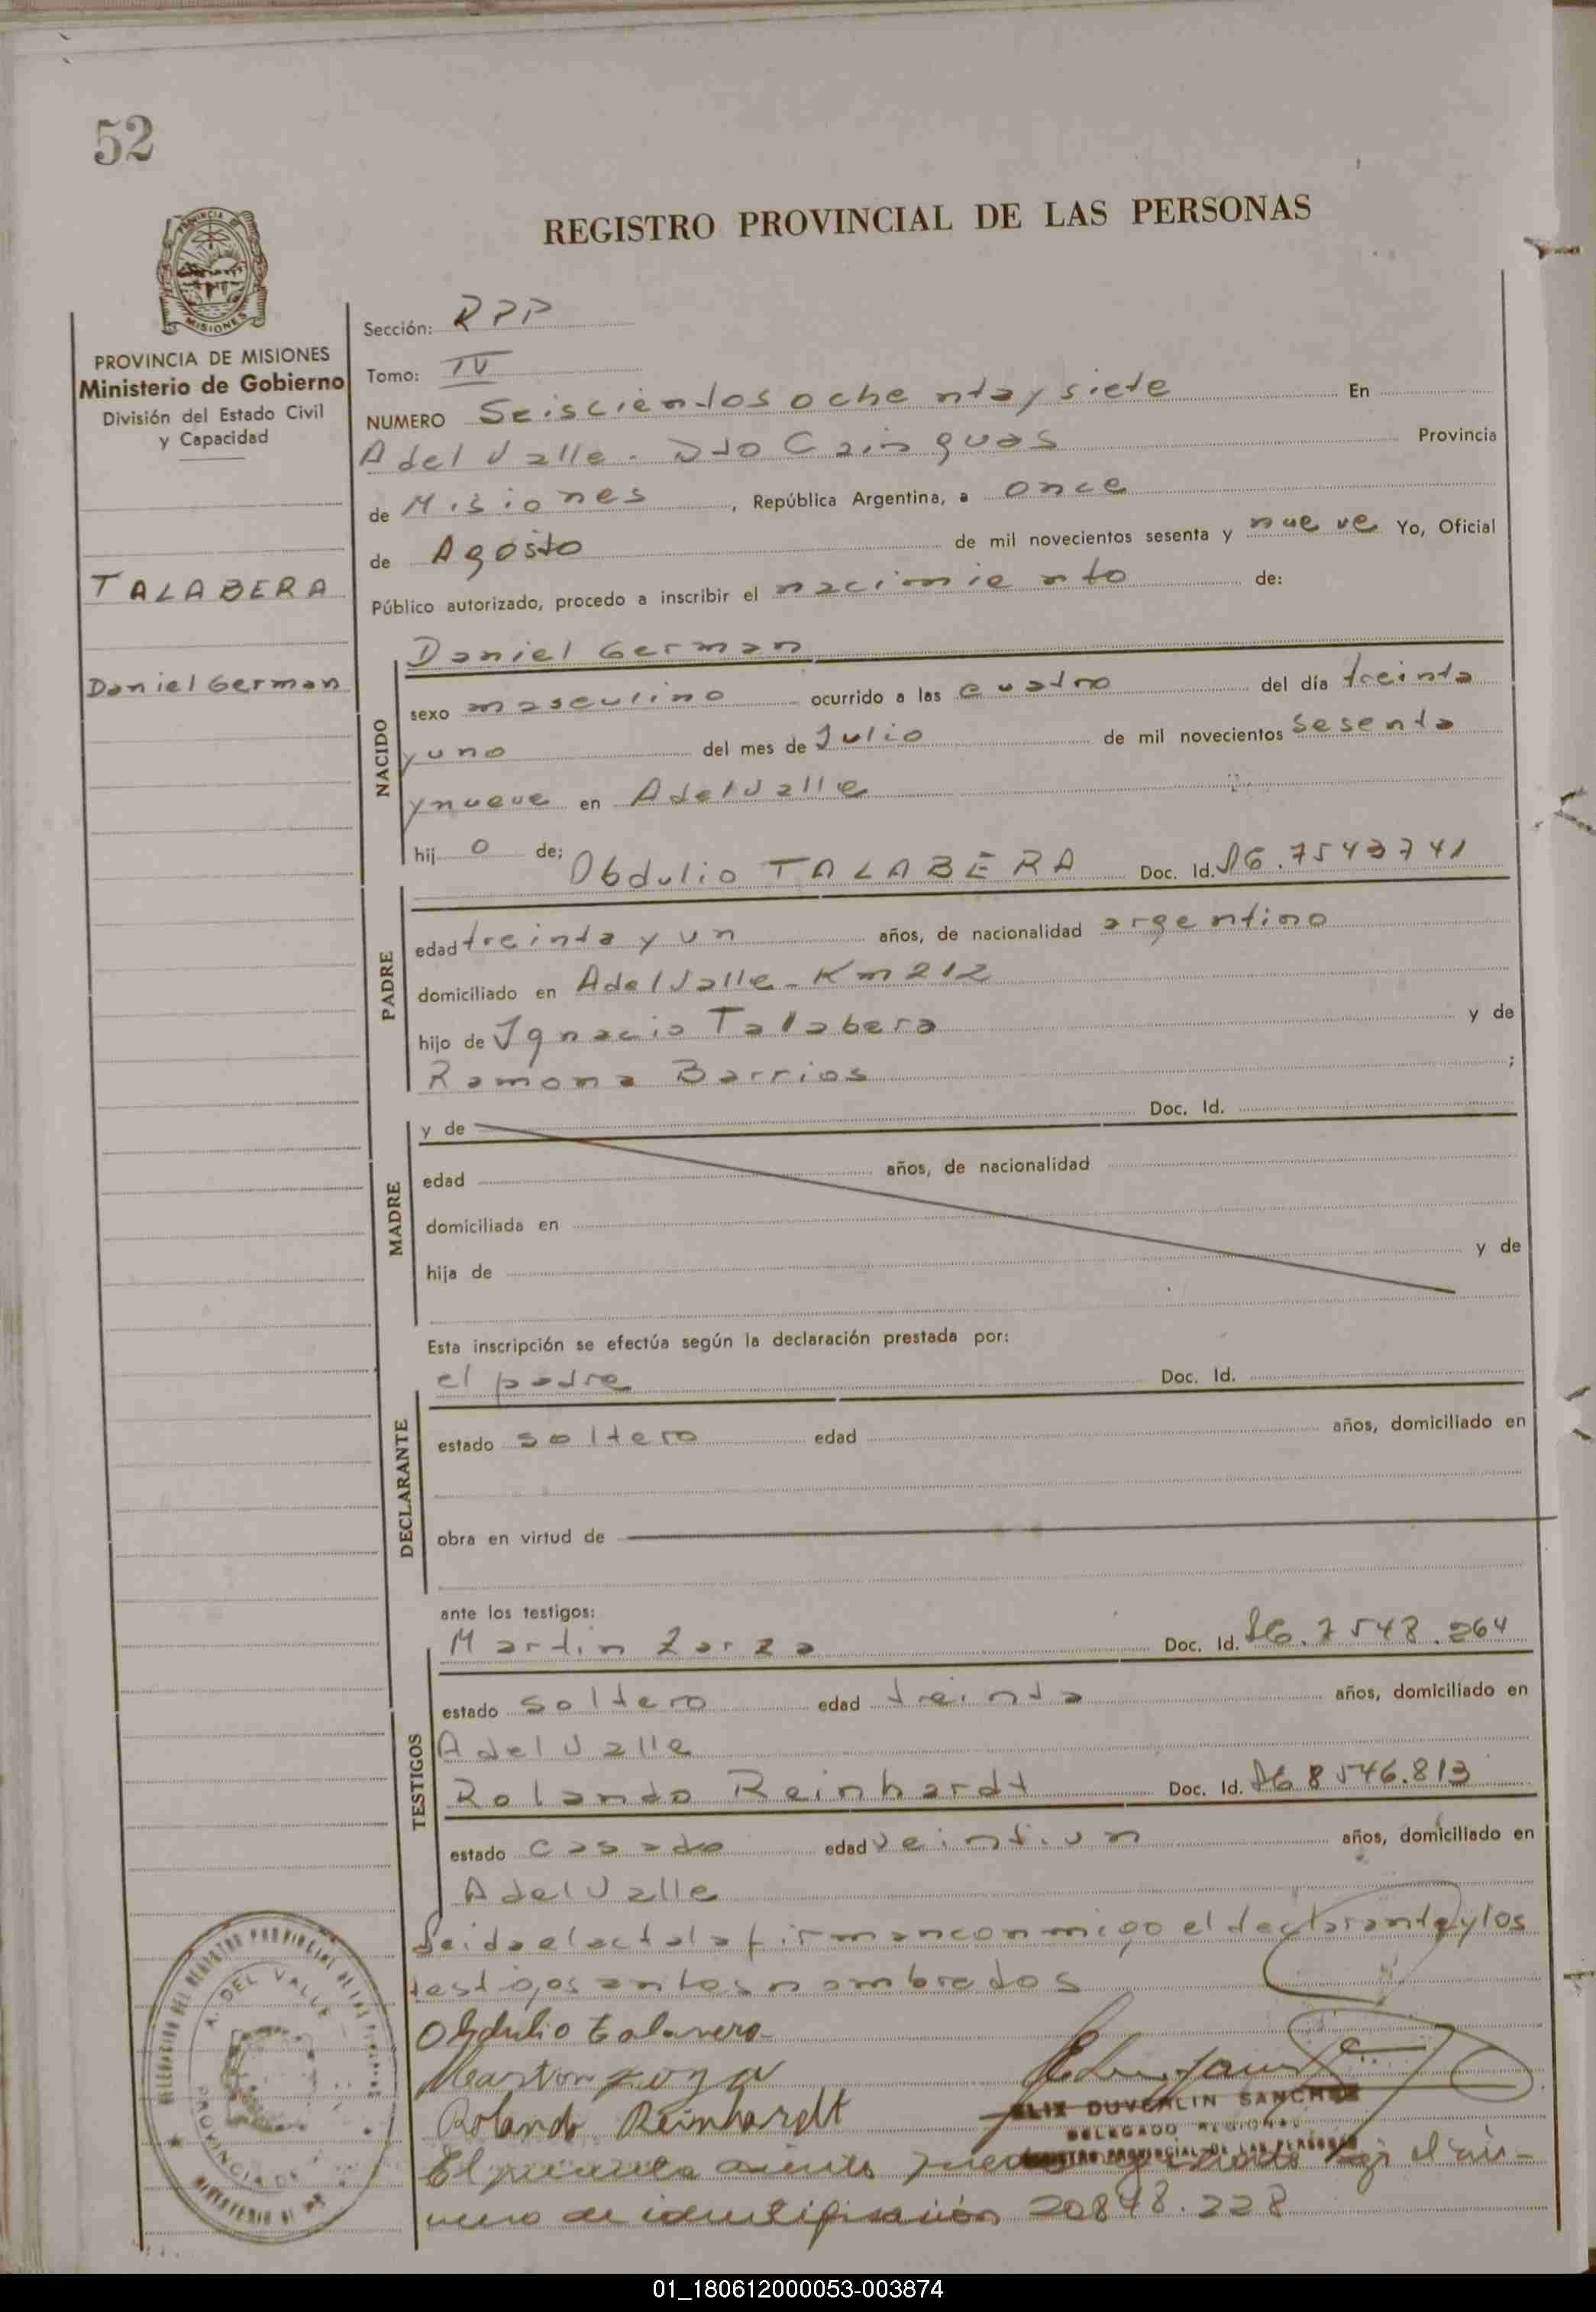 52
REGISTRO PROVINCIAL DE LAS PERSONAS
PROVINCIA DE MISIONES
Ministerio de Gobierno
División del Estado Civil
y Capacidad
TALABERA
Daniel German
Sección: RPP
Tomo: IV
NUMERO Seiscientos ochenta y siete En
A del Valle. Dto Cainguas Provincia
de Misiones, República Argentina, a once
de Agosto de mil novecientos sesenta y nueve Yo, Oficial
Público autorizado, procedo a inscribir el nacimiento de:
NACIDO
Daniel German
sexo masculino ocurrido a las cuatro del día treinta
y uno del mes de Julio de mil novecientos sesenta
y nueve en A del Valle
hij o de; Obdulio TALABERA Doc. Id. 7543741
PADRE
edad treinta y un años, de nacionalidad argentino
domiciliado en A del Valle - Km 212
hijo de Ignacio Talabera y de
Ramona Barrios ;
MADRE
y de Doc. Id.
edad años, de nacionalidad
domiciliada en
hija de y de
Esta inscripción se efectúa según la declaración prestada por:
DECLARANTE
el padre Doc. Id.
estado soltero edad años, domiciliado en
obra en virtud de
ante los testigos:
TESTIGOS
Martin Zarza Doc. Id. 7548.264
estado soltero edad treinta años, domiciliado en
A del Valle
Rolando Reinhardt Doc. Id. 8546.813
estado casado edad veintiun años, domiciliado en
A del Valle
Leida el acta la firman conmigo el declarante y los
testigos antes nombrados
Obdulio talavera
Rolando Reinhardt
DUVERLIN SANCHEZ
DELEGADO REGIONAL
REGISTRO PROVINCIAL DE LAS PERSONAS
El el nu-
mero de identificación 20878.228
A. DEL VALLE
01_180612000053-003874